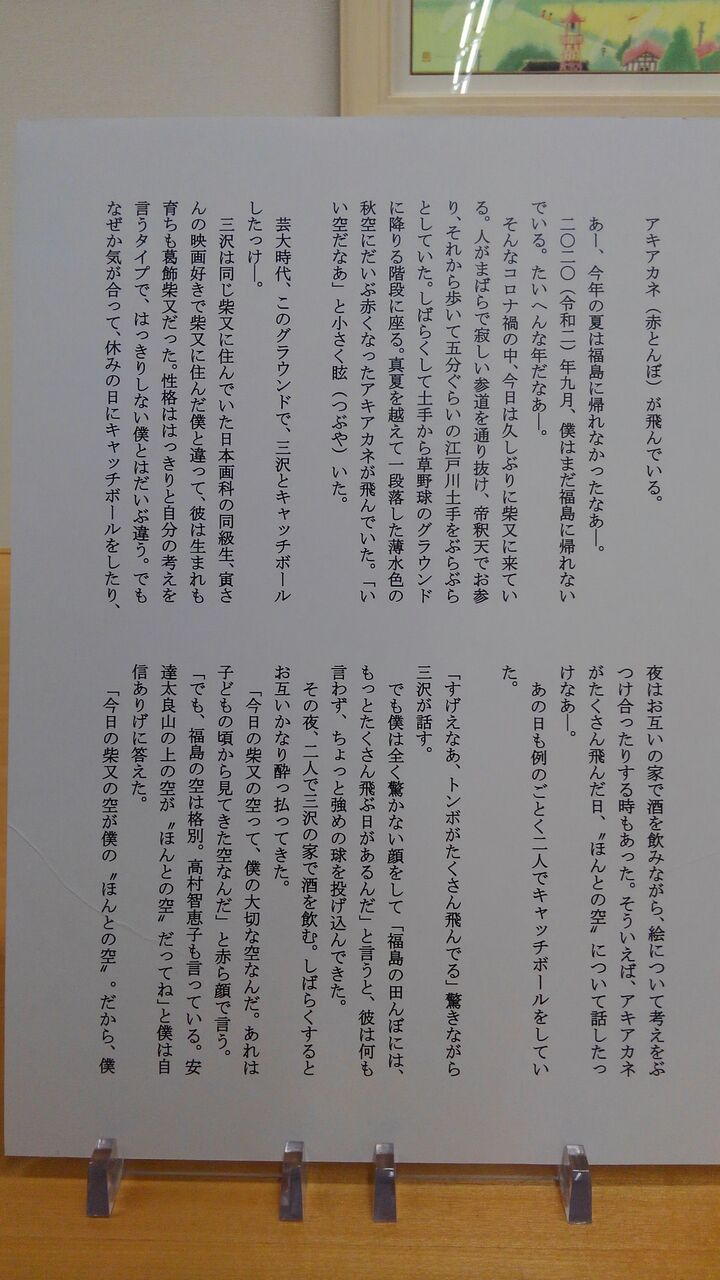 アキアカネ（赤とんぼ）が飛んでいる。
あー、今年の夏は福島に帰れなかったなあー。
二〇二〇（令和二）年九月、僕はまだ福島に帰れない
でいる。たいへんな年だなあー。
そんなコロナ禍の中、今日は久しぶりに柴又に来てい
る。人がまばらで寂しい参道を通り抜け、帝釈天でお参
り、それから歩いて五分ぐらいの江戸川土手をぶらぶら
としていた。しばらくして土手から草野球のグラウンド
に降りる階段に座る。真夏を越えて一段落した薄水色の
秋空にだいぶ赤くなったアキアカネが飛んでいた。「い
い空だなあ」と小さく眩（つぶや）いた。
芸大時代、このグラウンドで、三沢とキャッチボール
したっけー。
三沢は同じ柴又に住んでいた日本画科の同級生、寅さ
んの映画好きで柴又に住んだ僕と違って、彼は生まれも
育ちも葛飾柴又だった。性格ははっきりと自分の考えを
言うタイプで、はっきりしない僕とはだいぶ違う。でも
なぜか気が合って、休みの日にキャッチボールをしたり、
夜はお互いの家で酒を飲みながら、絵について考えをぶ
つけ合ったりする時もあった。そういえば、アキアカネ
がたくさん飛んだ日、〝ほんとの空〟について話したっ
けなあー。
あの日も例のごとく二人でキャッチボールをしてい
た。
「すげえなあ、トンボがたくさん飛んでる」驚きながら
三沢が話す。
でも僕は全く驚かない顔をして「福島の田んぼには、
もっとたくさん飛ぶ日があるんだ」と言うと、彼は何も
言わず、ちょっと強めの球を投げ込んできた。
その夜、二人で三沢の家で酒を飲む。しばらくすると
お互いかなり酔っ払ってきた。
「今日の柴又の空って、僕の大切な空なんだ。あれは
子どもの頃から見てきた空なんだ」と赤ら顔で言う。
「でも、福島の空は格別。高村智恵子も言っている。安
達太良山の上の空が〝ほんとの空〟だってね」と僕は自
信ありげに答えた。
「今日の柴又の空が僕の〝ほんとの空〟。だから、僕